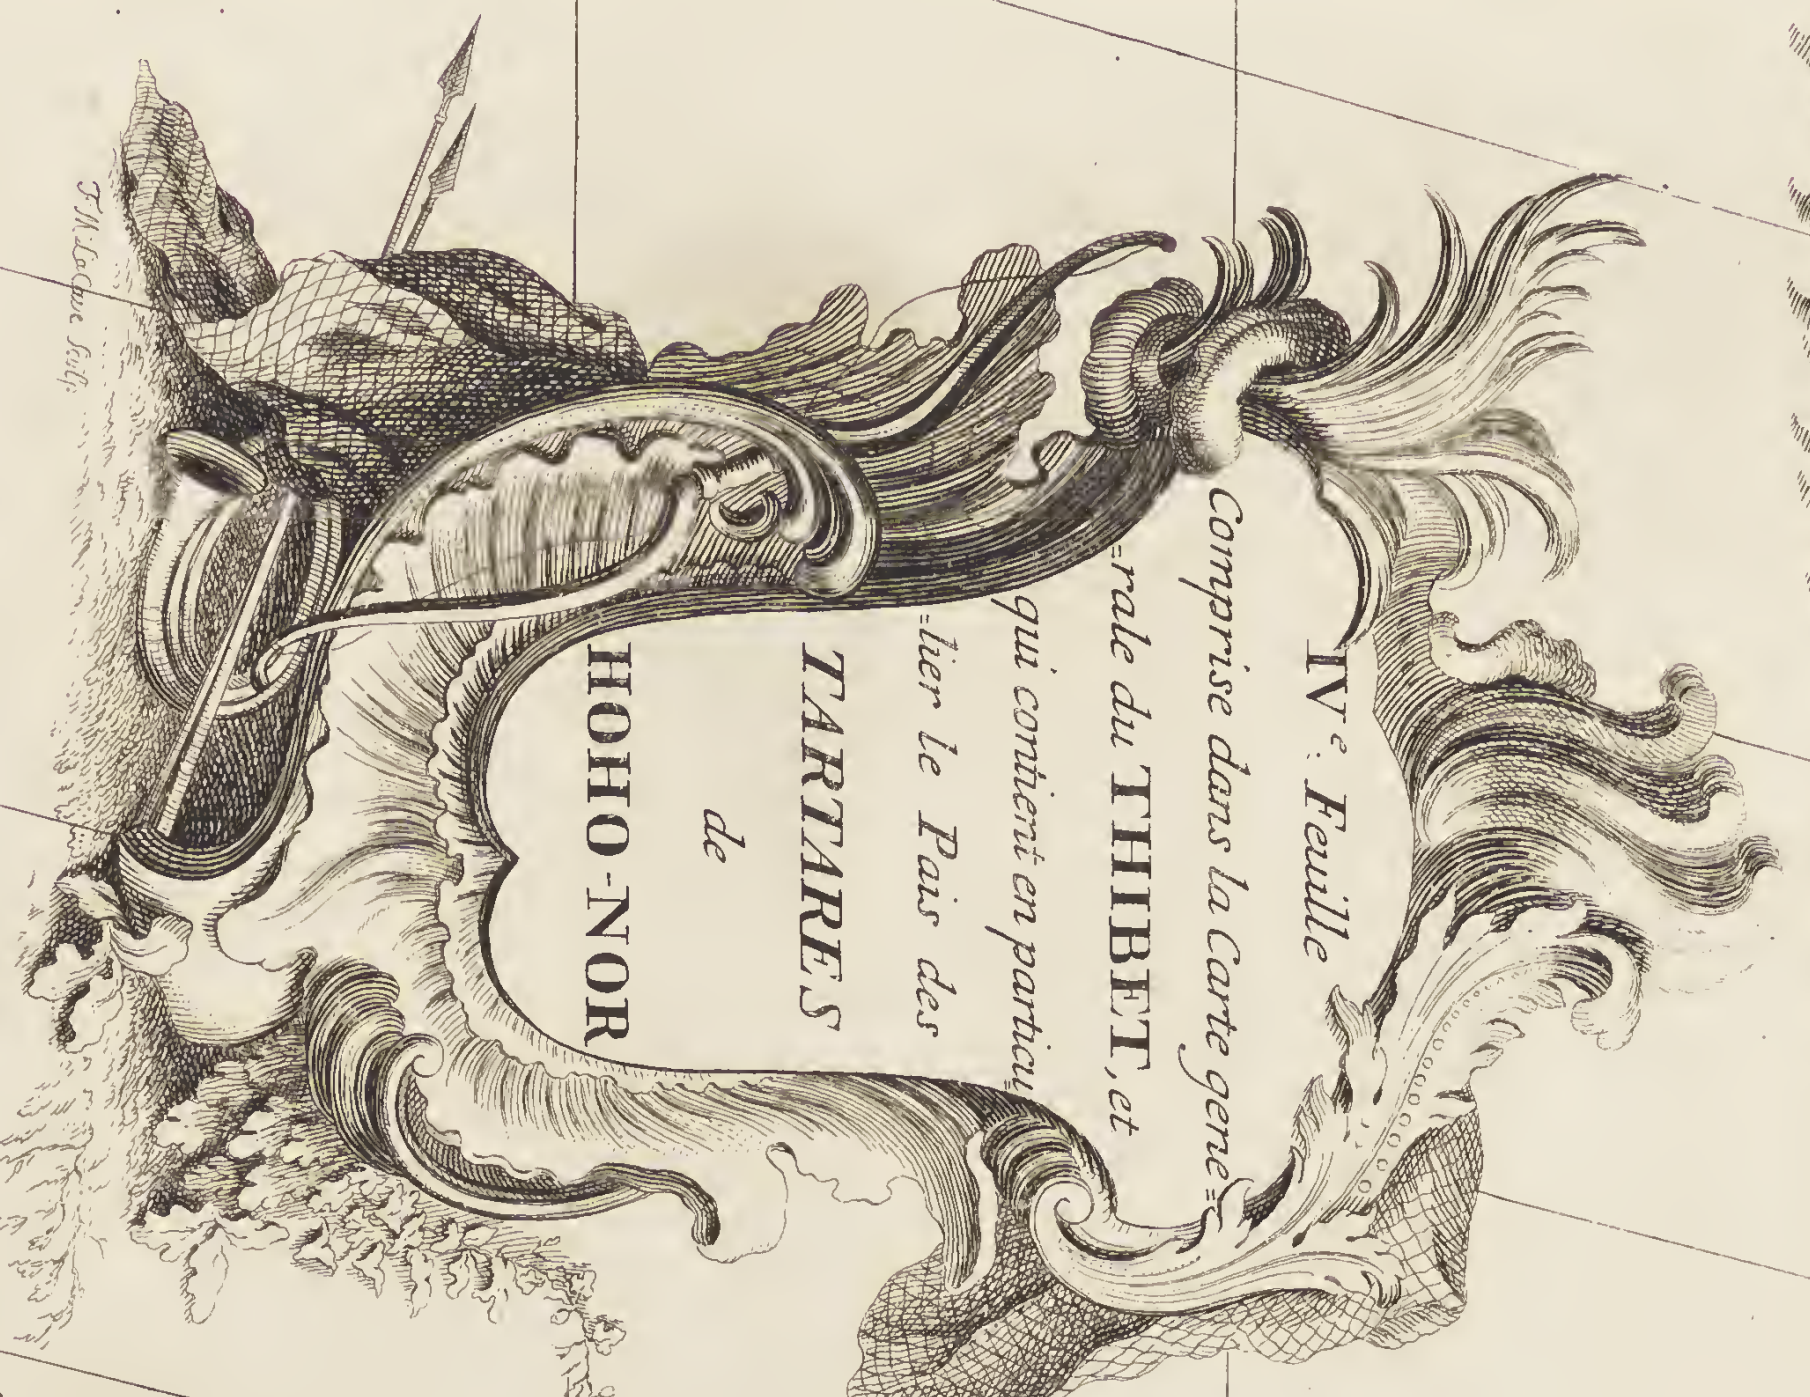 IVe. Feuille
Comprise dans la Carte gene=
=rale du THIBET, et
qui contient en particu=
=lier le Pais des
TARTARES
de
HOHO-NOR
Sculp